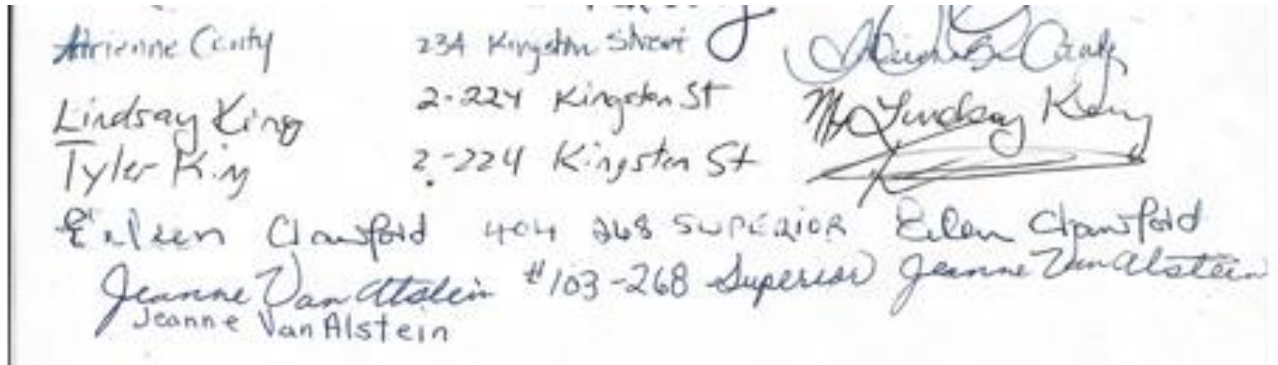 Adrienne Canty 234 Kingston Street
Lindsay King 2-224 Kingston St Lindsay King
Tyler King 2-224 Kingston St
Eileen Crawford 404 268 SUPERIOR Eileen Crawford
Jeanne Van Alstein #103-268 Superior Jeanne Van Alstein
Jeanne Van Alstein